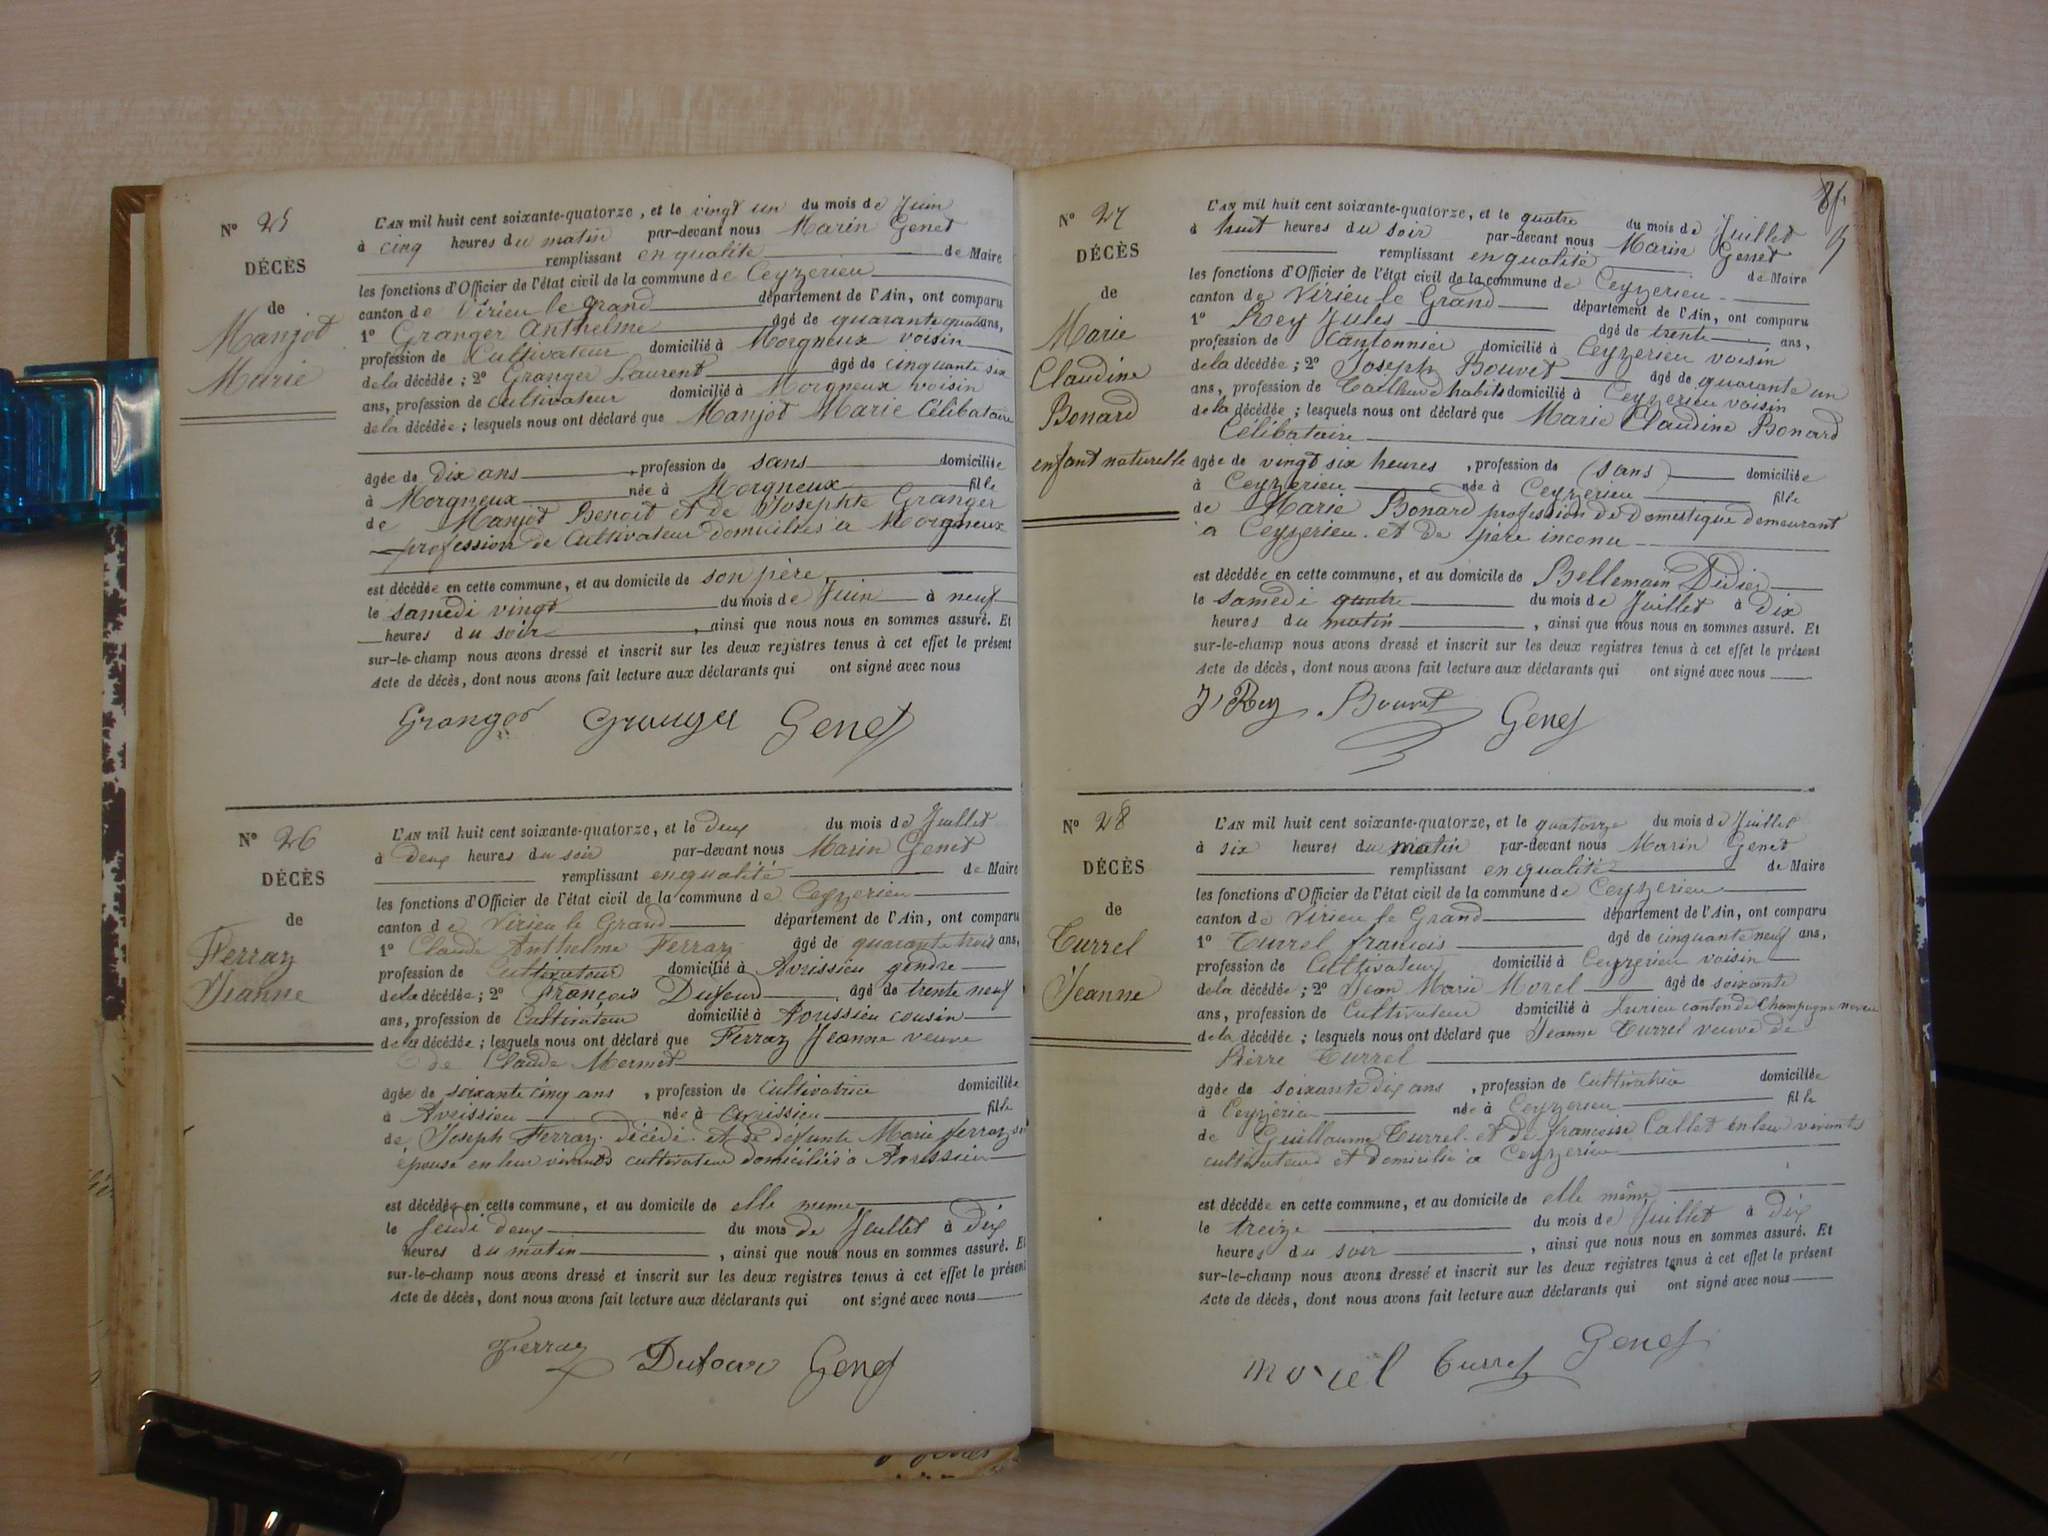 N° 25
DÉCÈS
de
Manjot
Marie
L'AN mil huit cent soixante-quatorze, et le vingt un du mois de Juin
à cinq heures du matin par-devant nous Marin Genet
remplissant en qualité de Maire
les fonctions d'Officier de l'état civil de la commune de Ceyzerieu
canton de Virieu le Grand département de l'Ain, ont comparu
1° Granger Anthelme âgé de quarante quatre ans,
profession de Cultivateur domicilié à Morgneux voisin
de la décédée ; 2° Granger Laurent âgé de cinquante six
ans, profession de cultivateur domicilié à Morgneux voisin
de la décédée ; lesquels nous ont déclaré que Manjot Marie Célibataire
âgée de dix ans , profession de sans domiciliée
à Morgneux née à Morgneux fille
de Manjot Benoit et de Josephte Granger
profession de Cultivateur domiciliés à Morgneux
est décédée en cette commune, et au domicile de son père
le samedi vingt du mois de Juin à neuf
heures du soir , ainsi que nous nous en sommes assuré. Et
sur-le-champ nous avons dressé et inscrit sur les deux registres tenus à cet effet le présent
Acte de décès, dont nous avons fait lecture aux déclarants qui ont signé avec nous
Granger Granger Genet
N° 26
DÉCÈS
de
Ferraz
Jeanne
L'AN mil huit cent soixante-quatorze, et le deux du mois de Juillet
à deux heures du soir par-devant nous Marin Genet
remplissant en qualité de Maire
les fonctions d'Officier de l'état civil de la commune de Ceyzerieu
canton de Virieu le Grand département de l'Ain, ont comparu
1° Claude Anthelme Ferraz âgé de quarante trois ans,
profession de Cultivateur domicilié à Avrissieu gendre
de la décédée ; 2° François Dufour âgé de trente neuf
ans, profession de Cultivateur domicilié à Avrissieu cousin
de la décédée ; lesquels nous ont déclaré que Ferraz Jeanne veuve
de Claude Mermet
âgée de soixante cinq ans , profession de Cultivatrice domiciliée
à Avrissieu née à Avrissieu fille
de Joseph Ferraz décédé et de défunte Marie Ferraz
épouse en leur vivants cultivateur domiciliés à Avrissieu
est décédée en cette commune, et au domicile de elle meme
le Jeudi deux du mois de Juillet à dix
heures du matin , ainsi que nous nous en sommes assuré. Et
sur-le-champ nous avons dressé et inscrit sur les deux registres tenus à cet effet le présent
Acte de décès, dont nous avons fait lecture aux déclarants qui ont signé avec nous
Ferraz Dufour Genet
N° 27
DÉCÈS
de
Marie
Claudine
Bonard
enfant naturelle
L'AN mil huit cent soixante-quatorze, et le quatre du mois de Juillet
à huit heures du soir par-devant nous Marin Genet
remplissant en qualité de Maire
les fonctions d'Officier de l'état civil de la commune de Ceyzerieu
canton de Virieu le Grand département de l'Ain, ont comparu
1° Rey Jules âgé de trente ans,
profession de Cantonnier domicilié à Ceyzerieu voisin
de la décédée ; 2° Joseph Bouvet âgé de quarante un
ans, profession de Tailleur d'habits domicilié à Ceyzerieu voisin
de la décédée ; lesquels nous ont déclaré que Marie Claudine Bonard
Célibataire
âgée de vingt six heures , profession de (sans) domiciliée
à Ceyzerieu née à Ceyzerieu fille
de Marie Bonard profession de Domestique demeurant
à Ceyzerieu et de père inconu
est décédée en cette commune, et au domicile de Bellemain Didier
le samedi quatre du mois de Juillet à dix
heures du matin , ainsi que nous nous en sommes assuré. Et
sur-le-champ nous avons dressé et inscrit sur les deux registres tenus à cet effet le présent
Acte de décès, dont nous avons fait lecture aux déclarants qui ont signé avec nous
J. Rey Bouvet Genet
N° 28
DÉCÈS
de
Turrel
Jeanne
L'AN mil huit cent soixante-quatorze, et le quatorze du mois de Juillet
à six heures du matin par-devant nous Marin Genet
remplissant en qualité de Maire
les fonctions d'Officier de l'état civil de la commune de Ceyzerieu
canton de Virieu le Grand département de l'Ain, ont comparu
1° Turrel françois âgé de cinquante neuf ans,
profession de Cultivateur domicilié à Ceyzerieu voisin
de la décédée ; 2° Jean Marie Morel âgé de soixante
ans, profession de Cultivateur domicilié à canton de Champagne neveu
de la décédée ; lesquels nous ont déclaré que Jeanne Turrel veuve de
Pierre Turrel
âgée de soixante dix ans , profession de Cultivatrice domiciliée
à Ceyzerieu née à Ceyzerieu fille
de Guillaume Turrel et de françoise Callet en leur vivants
cultivateurs et domicilié à Ceyzerieu
est décédée en cette commune, et au domicile de elle même
le treize du mois de Juillet à dix
heures du soir , ainsi que nous nous en sommes assuré. Et
sur-le-champ nous avons dressé et inscrit sur les deux registres tenus à cet effet le présent
Acte de décès, dont nous avons fait lecture aux déclarants qui ont signé avec nous
morel Turrel Genet